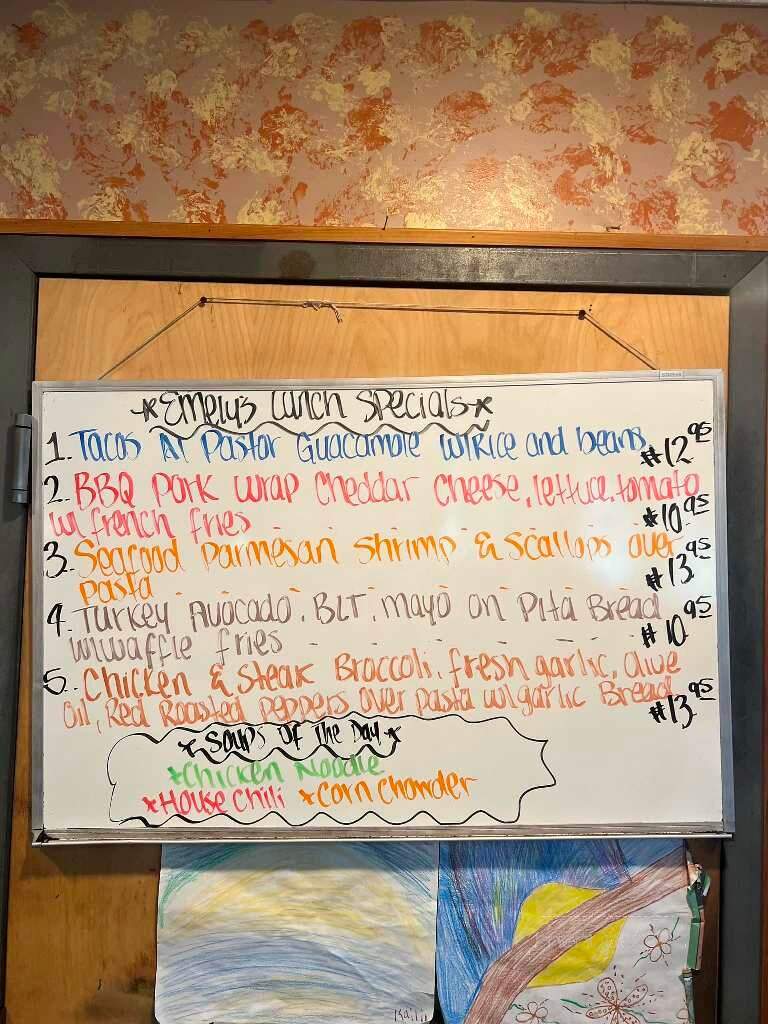 *Emely's Lunch Specials*
1. Tacos Al Pastor Guacamole w/Rice and beans $12.95
2. BBQ Pork Wrap Cheddar Cheese, lettuce, tomato
w/ french fries $10.95
3. Seafood Parmesan Shrimp & Scallops over
pasta $13.95
4. Turkey Avocado, BLT, mayo on Pita Bread
w/waffle fries $10.95
5. Chicken & Steak Broccoli, fresh garlic, Olive
Oil, Red Roasted peppers over pasta w/garlic Bread $13.95
*Soups of the Day*
*Chicken Noodle
*House Chili *Corn Chowder